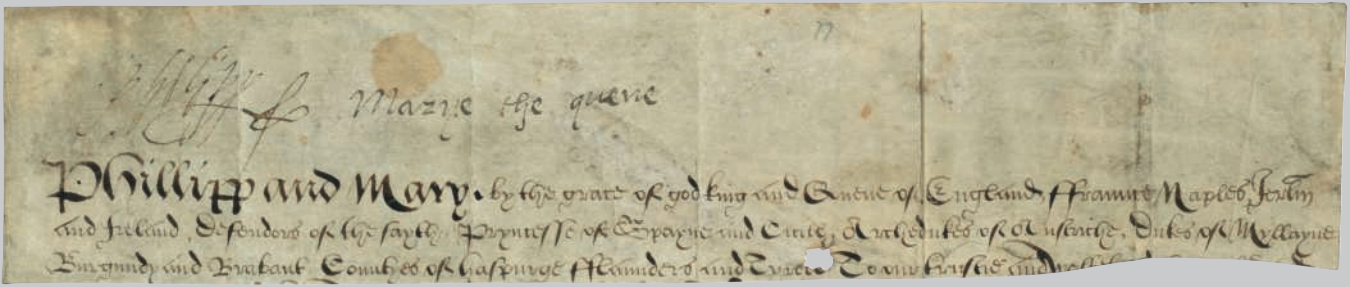 77
Philipp Marye the quene
Phillipp and Mary by the grace of god king and Quene of England, ffraunce, Naples, Jerlm
and Ireland, defendors of the fayth, Pryncesse of Spayne and Cicile, Archedukes of Austriche, Dukes of Myllayne
Burgundy and Brabant, Counties of haspurge fflaunders and Tyroll To our trustie and